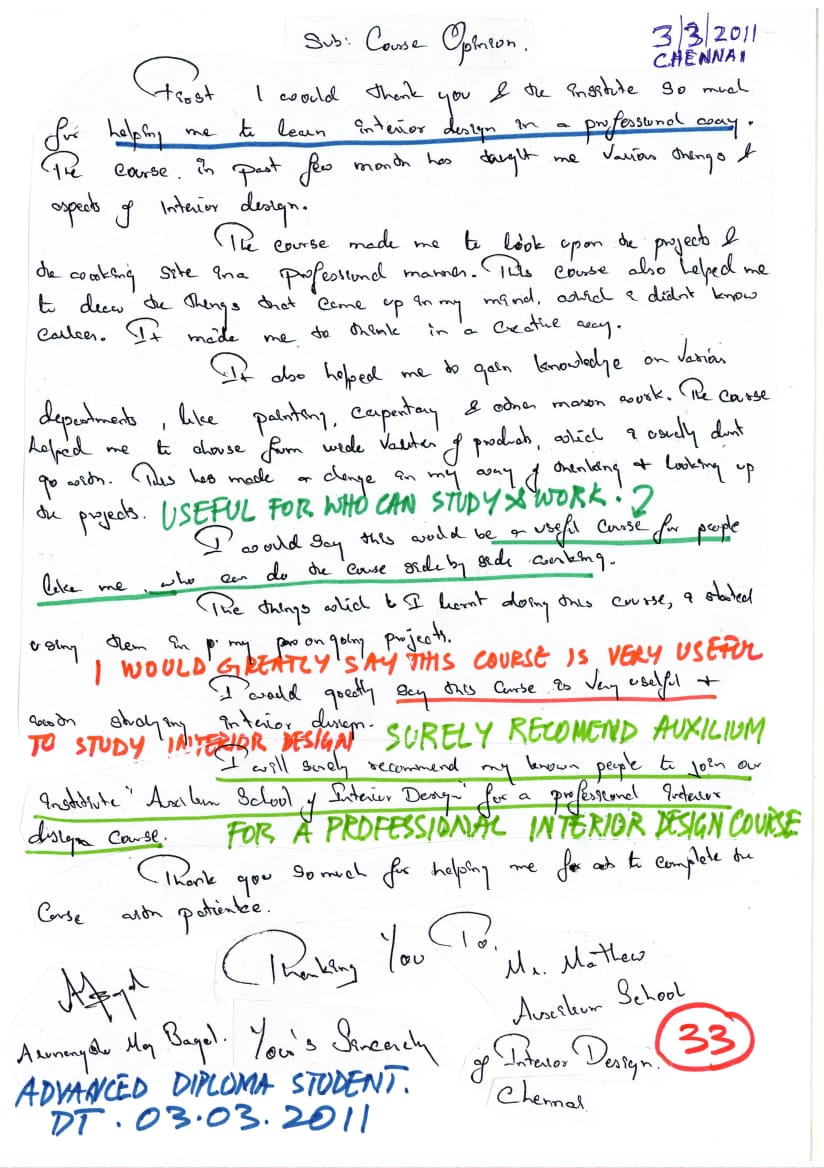 Sub: Course Opinion.
3/3/2011
CHENNAI
First I would thank you & the institute so much
for helping me to learn interior design in a professional way.
The course, in past few month has taught me various things &
aspects of Interior design.
The course made me to look upon the projects &
the working site in a professional manner. This course also helped me
to draw the things that came up in my mind, which I didnt know
earlier. It made me to think in a creative way.
It also helped me to gain knowledge on various
departments, like painting, carpentary & other mason work. The course
helped me to choose from wide of products, which I usually dont
go with. This has made a change in my way of thinking & looking up
the projects. USEFUL FOR WHO CAN STUDY & WORK.
I would say this would be a useful course for people
like me, who can do the course side by side working.
The things which I learnt doing this course, I started
using them in my on going projects.
I WOULD GREATLY SAY THIS COURSE IS VERY USEFUL
I would greatly say this course is very useful +
studying interior design.
TO STUDY INTERIOR DESIGN SURELY RECOMEND AUXILIUM
I will surely recommend my known people to join our
institute "Auxilium School of Interior Design" for a professional interior
design course. FOR A PROFESSIONAL INTERIOR DESIGN COURSE
Thank you so much for helping me to complete the
Corse with patience.
Thanking You To,
Mr. Mathew
Auxilium School
of Interior Design.
Chennai
Bagel. Your's Sincerely
33
ADVANCED DIPLOMA STUDENT.
DT. 03.03.2011